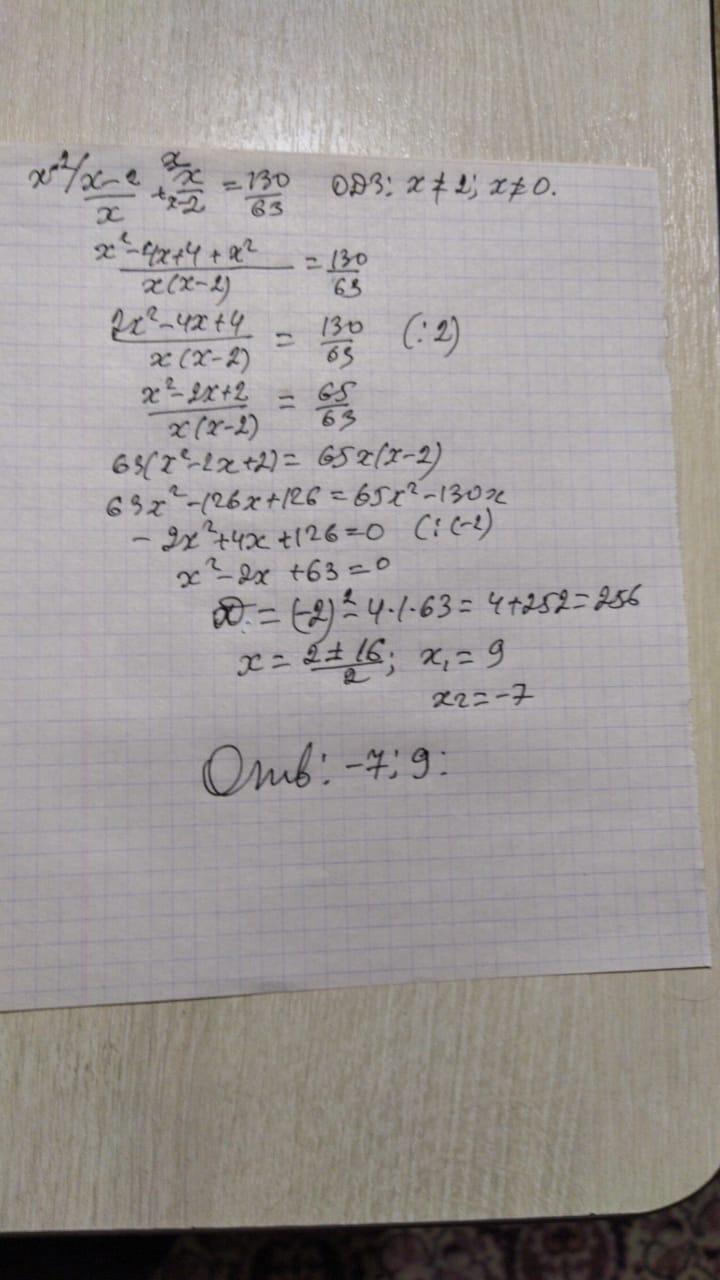 x-2/ x-2/x + x/ x/x-2 = 130/63 ОДЗ: x ≠ 2; x ≠ 0.
x²-4x+4+x²/x(x-2) = 130/63
2x²-4x+4/x(x-2) = 130/63 (:2)
x²-2x+2/x(x-2) = 65/63
63(x²-2x+2) = 65x(x-2)
63x²-126x+126 = 65x²-130x
-2x²+4x+126=0 (:(-2)
x²-2x+63=0
D = (-2)²-4·1·63 = 4+252=256
x = 2±16/2; x₁ = 9
x₂ = -7
Отв: -7; 9: